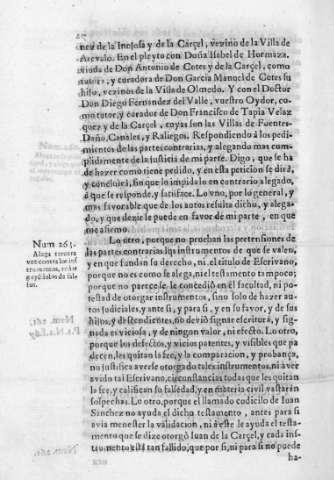 nez de la Inojosa y de la Carçel, vezino de la Villa de
Arevalo. En el pleyto con Doña Isabel de Hormaza,
viuda de Don Antonio de Cotes y de la Carçel, como
tutora, y curadora de Don Garcia Manuel de Cotes su
hijo, vezinos de la Villa de Olmedo. Y con el Doctor
Don Diego Fernandez del Valle, vuestro Oydor, como
tutor, y curador de Don Francisco de Tapia Velaz
quez y de la Carçel, cuyas son las Villas de Fuentes-
Daño, Canales, y Raliegos. Respondiendo à los pedi-
mientos de las partes contrarias, y alegando mas cum-
plidamente de la justicia de mi parte. Digo, que se ha
de hazer como tengo pedido, y en esta peticion se dirà,
y concluirà, sin que lo impida lo en contrario alegado,
à que se responde, y satisface. Lo vno, por lo general, y
mas favorable que de los autos resulta dicho, y alega-
do, y que dezir se puede en favor de mi parte, en que
me afirmo.
Num 263.
Alega
tra los ins
trumentos,
Lo otro, porque no prueban las pretensiones de
las partes contrarias los instrumentos de que se valen,
y en que fundan su derecho, ni el titulo de Escrivano,
porque no es como se alega, ni el testamento tampoco;
porque no parece se le concediò en èl facultad, ni po-
testad de otorgar instrumentos, sino solo de hazer au-
tos judiciales, y ante si, y para si, y en su favor, y de sus
hijos, y descendientes, no deviò signar escritura, y sig-
nada es viciosa, y de ningun valor, ni efecto. Lo otro,
porque los defectos, y vicios patentes, y visibles que pa
decen, les quitan la fee, y la comparacion, y probança,
no justifica averse otorgado tales instrumentos, ni aver
avido tal Escrivano, circunstancias todas que les quitan
la fee, y califican su falsedad, y en materia civil vastaràn
sospechas. Lo otro, porque el llamado codicilo de Iuan
Sanchez no ayuda el dicho testamento, antes para si
avia menester la validacion, ni à este le ayuda el testa-
mento que se dize otorgò Iuan de la Carçel, y cada ins-
trumento està tan fallido, que por si, ni para si no puede
ha-